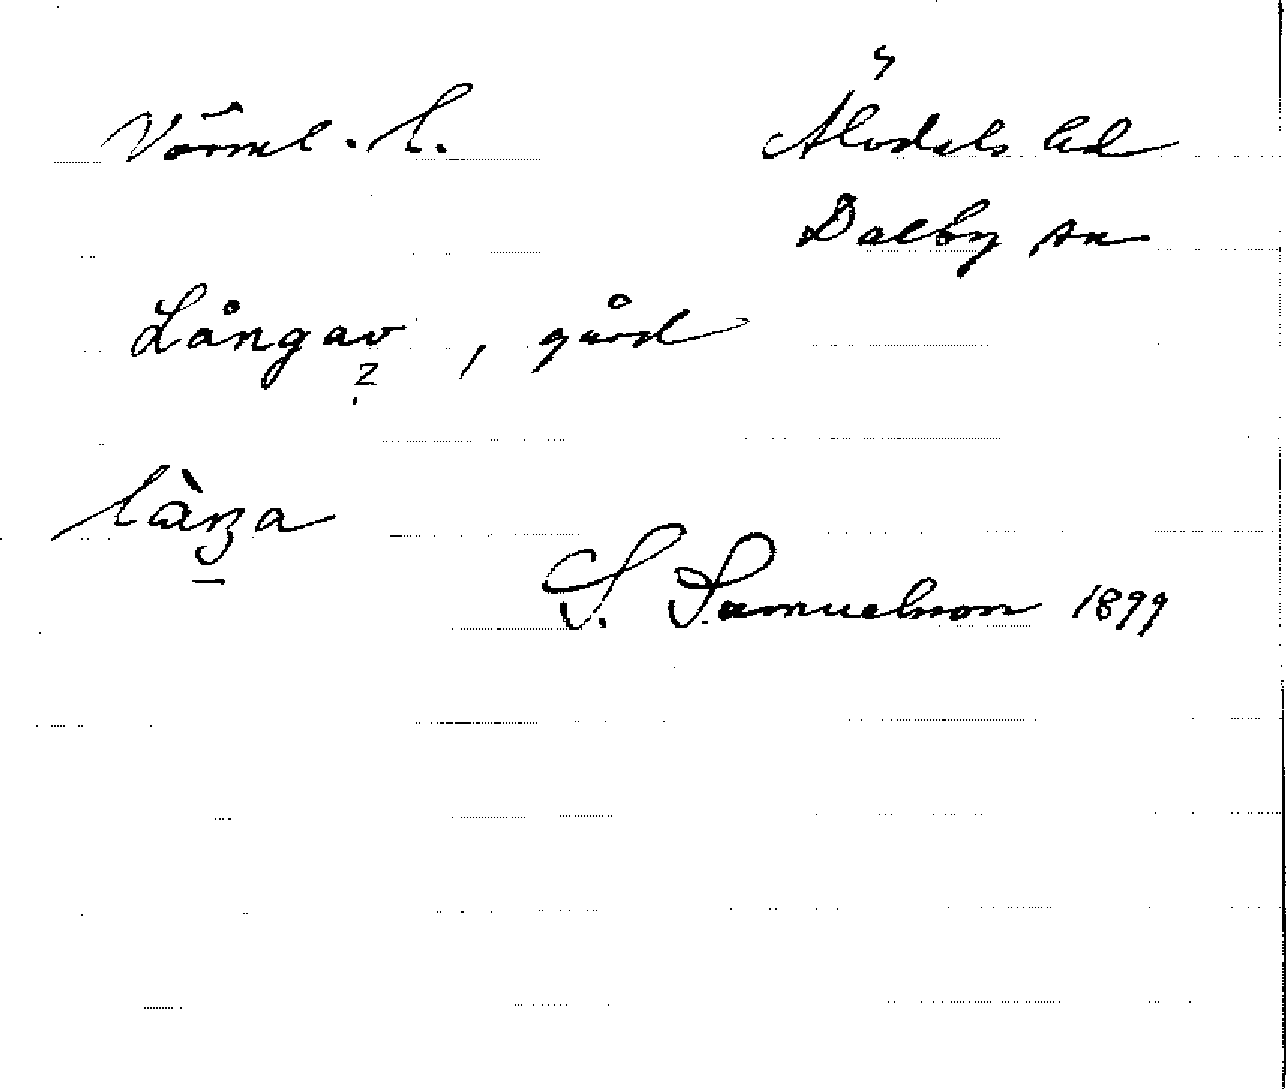 Värml. l. Älvdals hd
Dalby sn
Långav, gård
?
S. Samuelson 1899